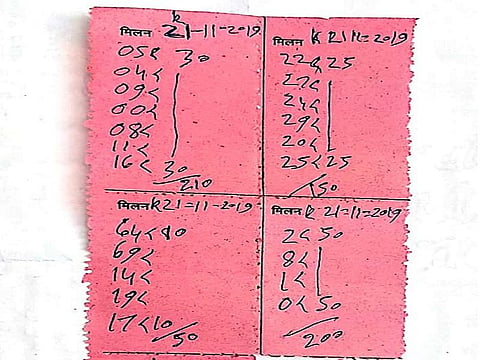 मिलन K 21-11-2019
05< 30
04<
09<
00<
08<
11<
16< 30
210
मिलन K 21-11=2019
22< 25
27<
24<
29<
20<
25< 25
150
मिलन K 21=11-2019
64< 10
69<
14<
19<
17< 10
50
मिलन K 21=11=2019
2< 50
8<
1<
0< 50
200